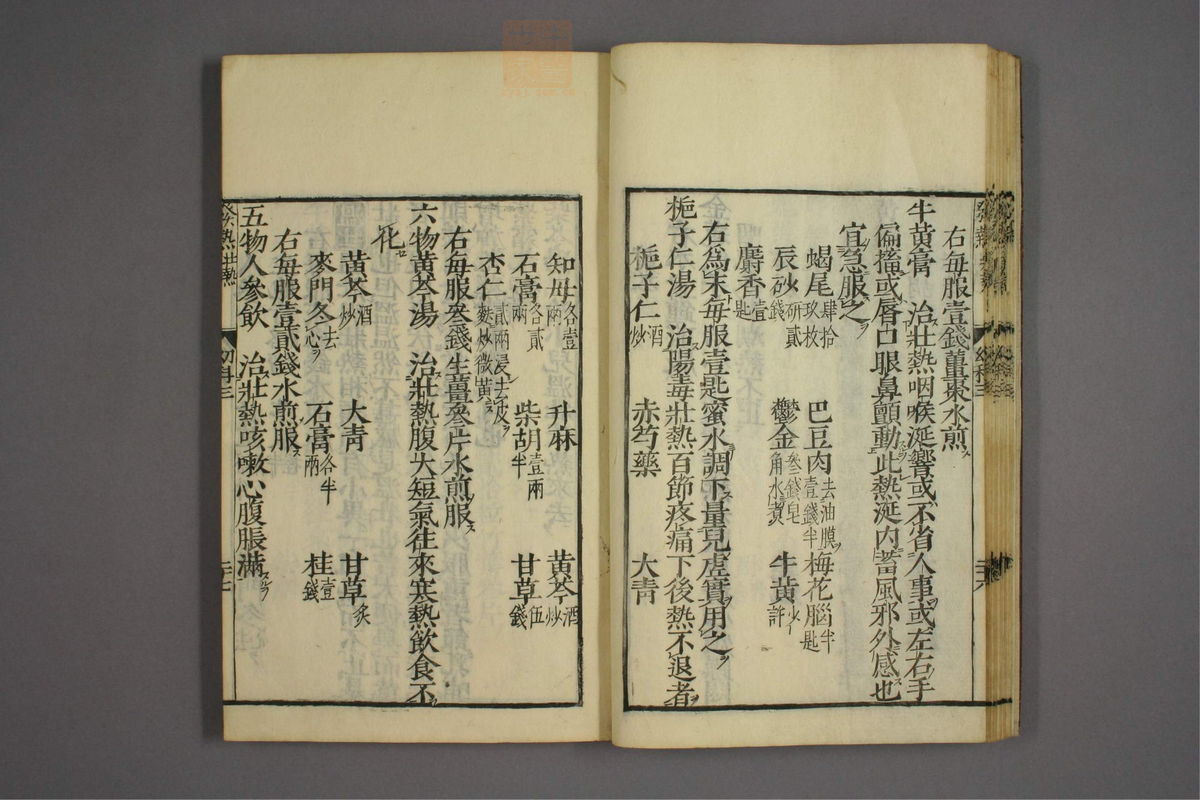 右每服壹錢薑棗水煎ス
牛黃膏　治壯熱咽喉涎響或不省人事或左右手
偏搐或唇口眼鼻顫動此熱涎內蓄風邪外感也
宜急服之
蝎尾肆拾玖枚　巴豆肉去油膜壹錢半　梅花腦半匙
辰砂研貳錢　鬱金叄錢皂角水煮　牛黃少許
麝香壹匙
右爲末每服壹匙蜜水調下量兒虛實用之
梔子仁湯　治陽毒壯熱百節疼痛下後熱不退者
梔子仁酒炒　赤芍藥　大青
知母各壹兩　升麻　黃芩酒炒
石膏各貳兩　柴胡壹兩半　甘草伍錢
杏仁貳兩浸去皮麩炒微黃
右每服叄錢生薑叄片水煎服
六物黃芩湯　治壯熱腹大短氣往來寒熱飲食不
化
黃芩酒炒　大青　甘草炙
麥門冬去心　石膏各半兩　桂壹錢
右每服壹貳錢水煎服
五物人參飲　治壯熱咳嗽心腹脹滿
發熱壯熱　幼科三